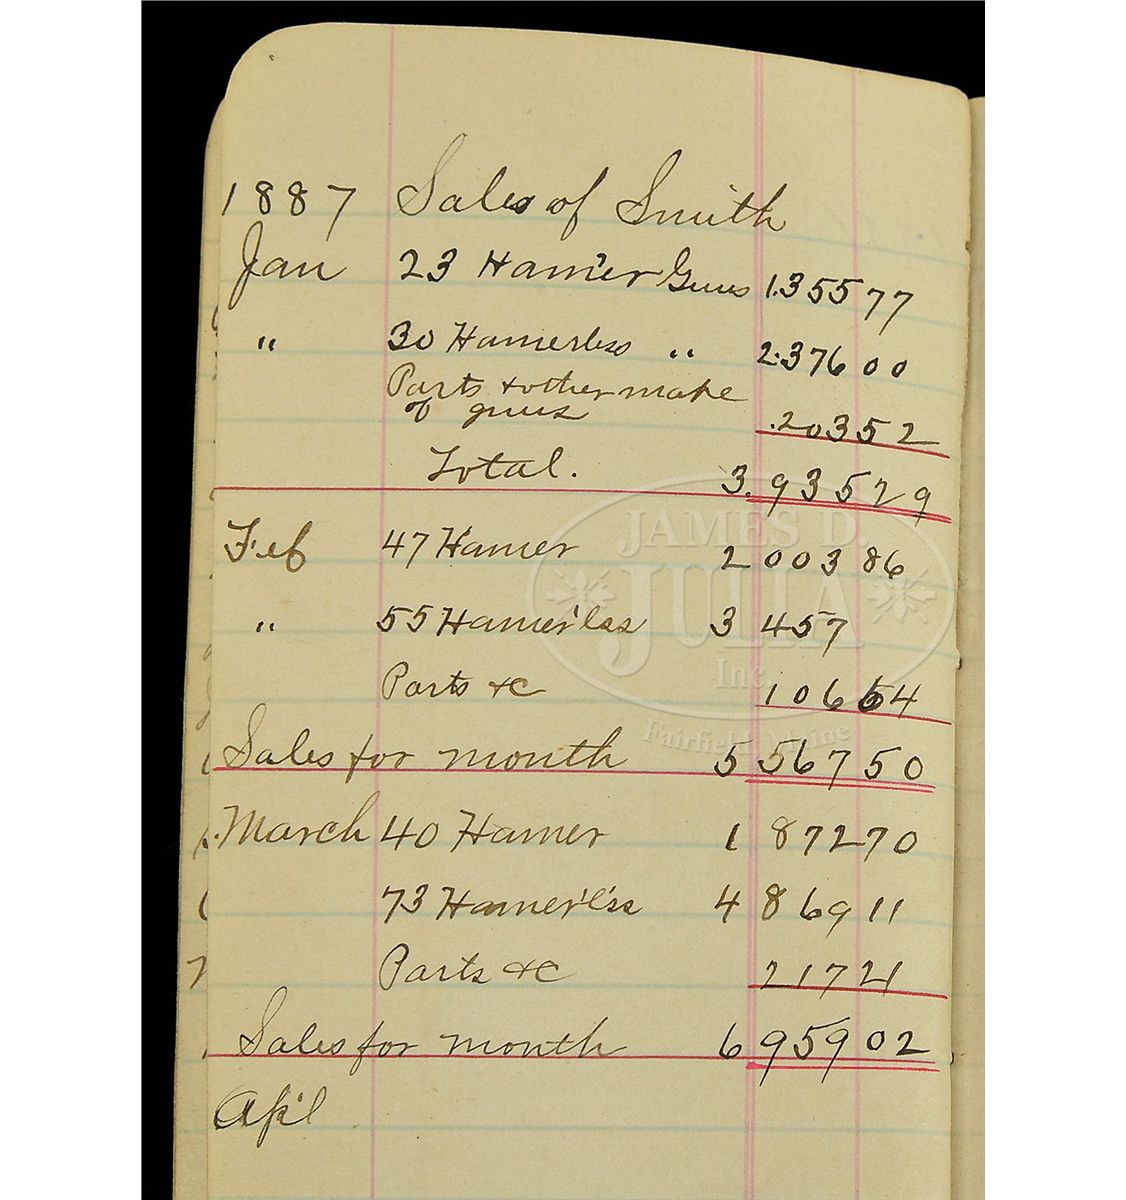 1887 Sales of Smith
Jan 23 Ham'er Guns 1.355 77
" 30 Hamerless " 2.376 00
Parts & other make
of guns .203 52
Total. 3.935 29
Feb 47 Hamer 2 003 86
" 55 Hamer'lss 3 457
Parts &c 106 64
Sales for month 5 567 50
March 40 Hamer 1 872 70
73 Hamer'l'ss 4 869 11
Parts &c 217 21
Sales for month 6 959 02
Apl
JAMES D.
JULIA
Inc
Fairfield, Maine